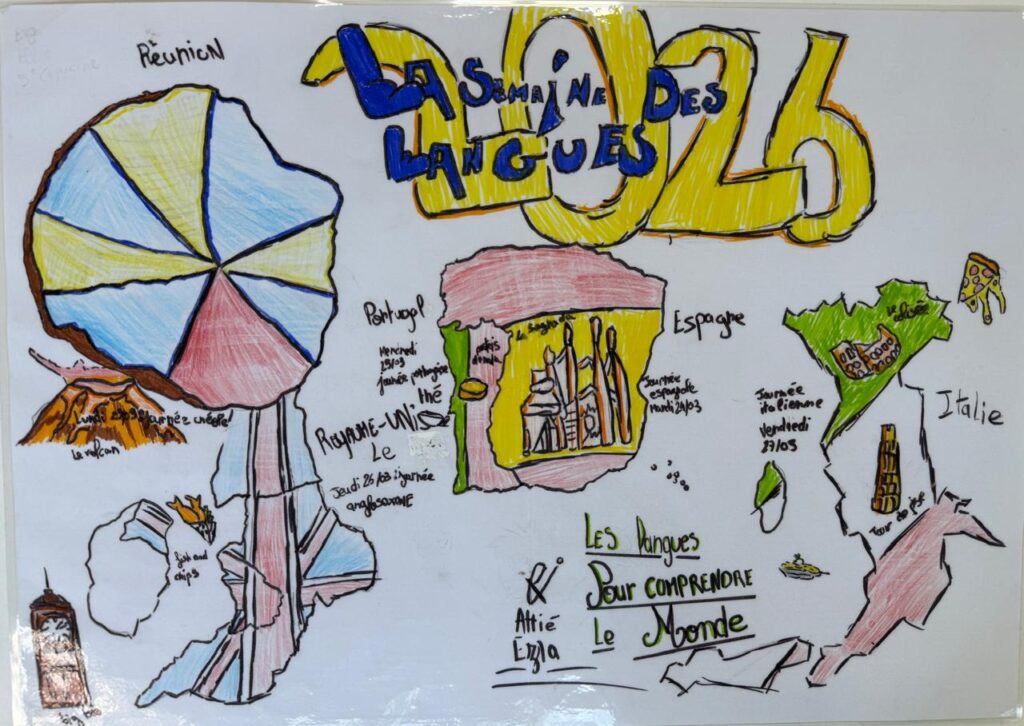 Réunion
2026
LA SEMAINE DES
LANGUES
Portugal
Vendredi
journée portugaise
Espagne
Journée
espagnole
Mardi 24/03
La Sagrada
Lundi 23/03 journée créole
Le volcan
ROYAUME-UNIS
Le
thé
Jeudi 26/03 : journée
anglosaxonne
fish and
chips
big ben
Journée
italienne
Vendredi
27/03
Italie
Tour de pise
LES langues
Pour COMPRENDRE
Le Monde
&
Attié